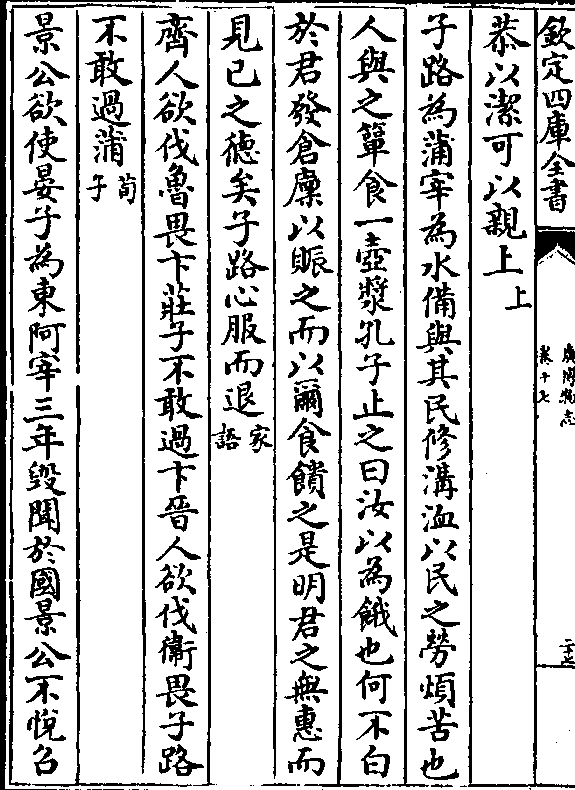 欽定四庫全書
廣博物志
卷十七
二十七
恭以潔可以親上上
子路為蒲宰為水備與其民修溝洫以民之勞煩苦也
人與之簞食一壺漿孔子止之曰汝以為餓也何不白
於君發倉廩以賑之而以爾食饋之是明君之無惠而
見己之德矣子路心服而退家語
齊人欲伐魯畏卞莊子不敢過卞晉人欲伐衛畏子路
不敢過蒲荀子
景公欲使晏子為東阿宰三年毀聞於國景公不悅召